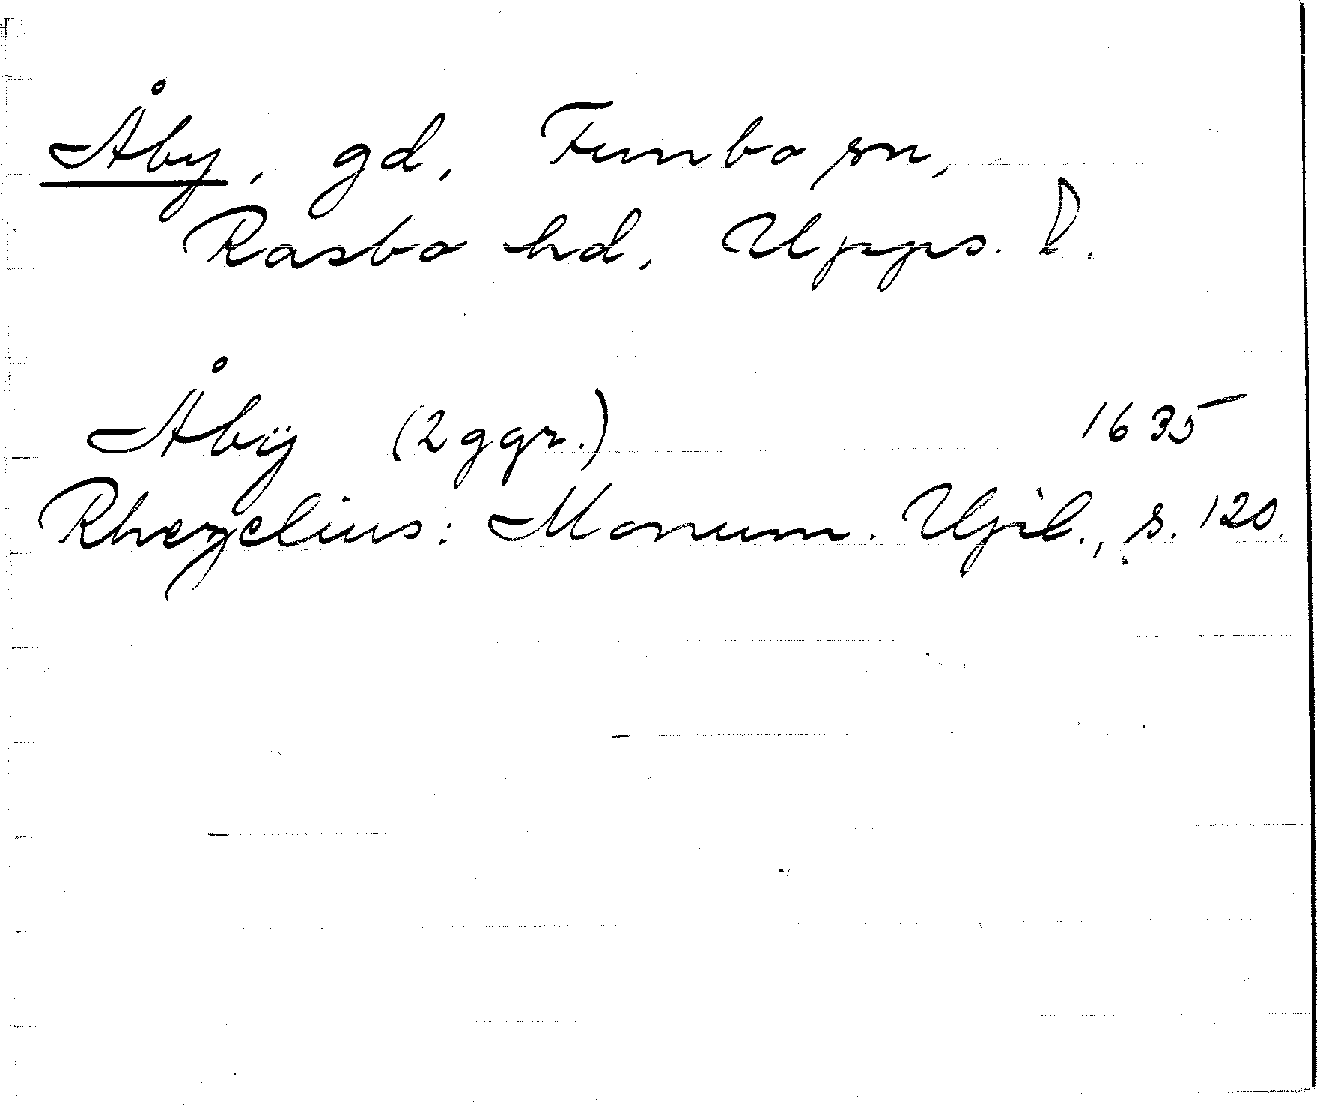 Åby, gd, Funbo sn,
Rasbo hd, Upps. l.
Åbÿ (2 ggr.) 1635
Rhezelius: Monum. Upl., s. 120.